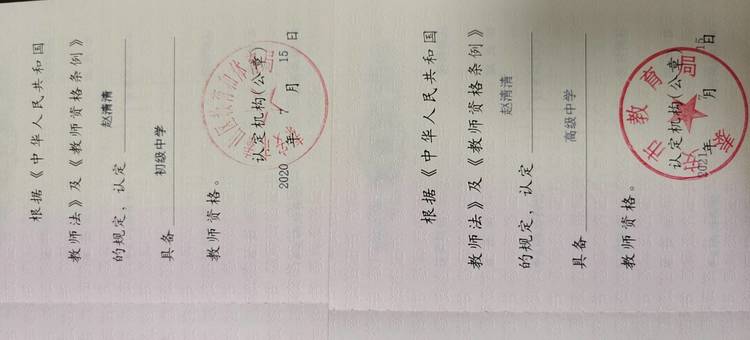 根据《中华人民共和国
教师法》及《教师资格条例》
的规定，认定 赵清清
具备 初级中学
教师资格。
认定机构(公章)
2020 年 月 15 日
根据《中华人民共和国
教师法》及《教师资格条例》
的规定，认定 赵清清
具备 高级中学
教师资格。
市教育局
认定机构(公章)
2021年 月 15日